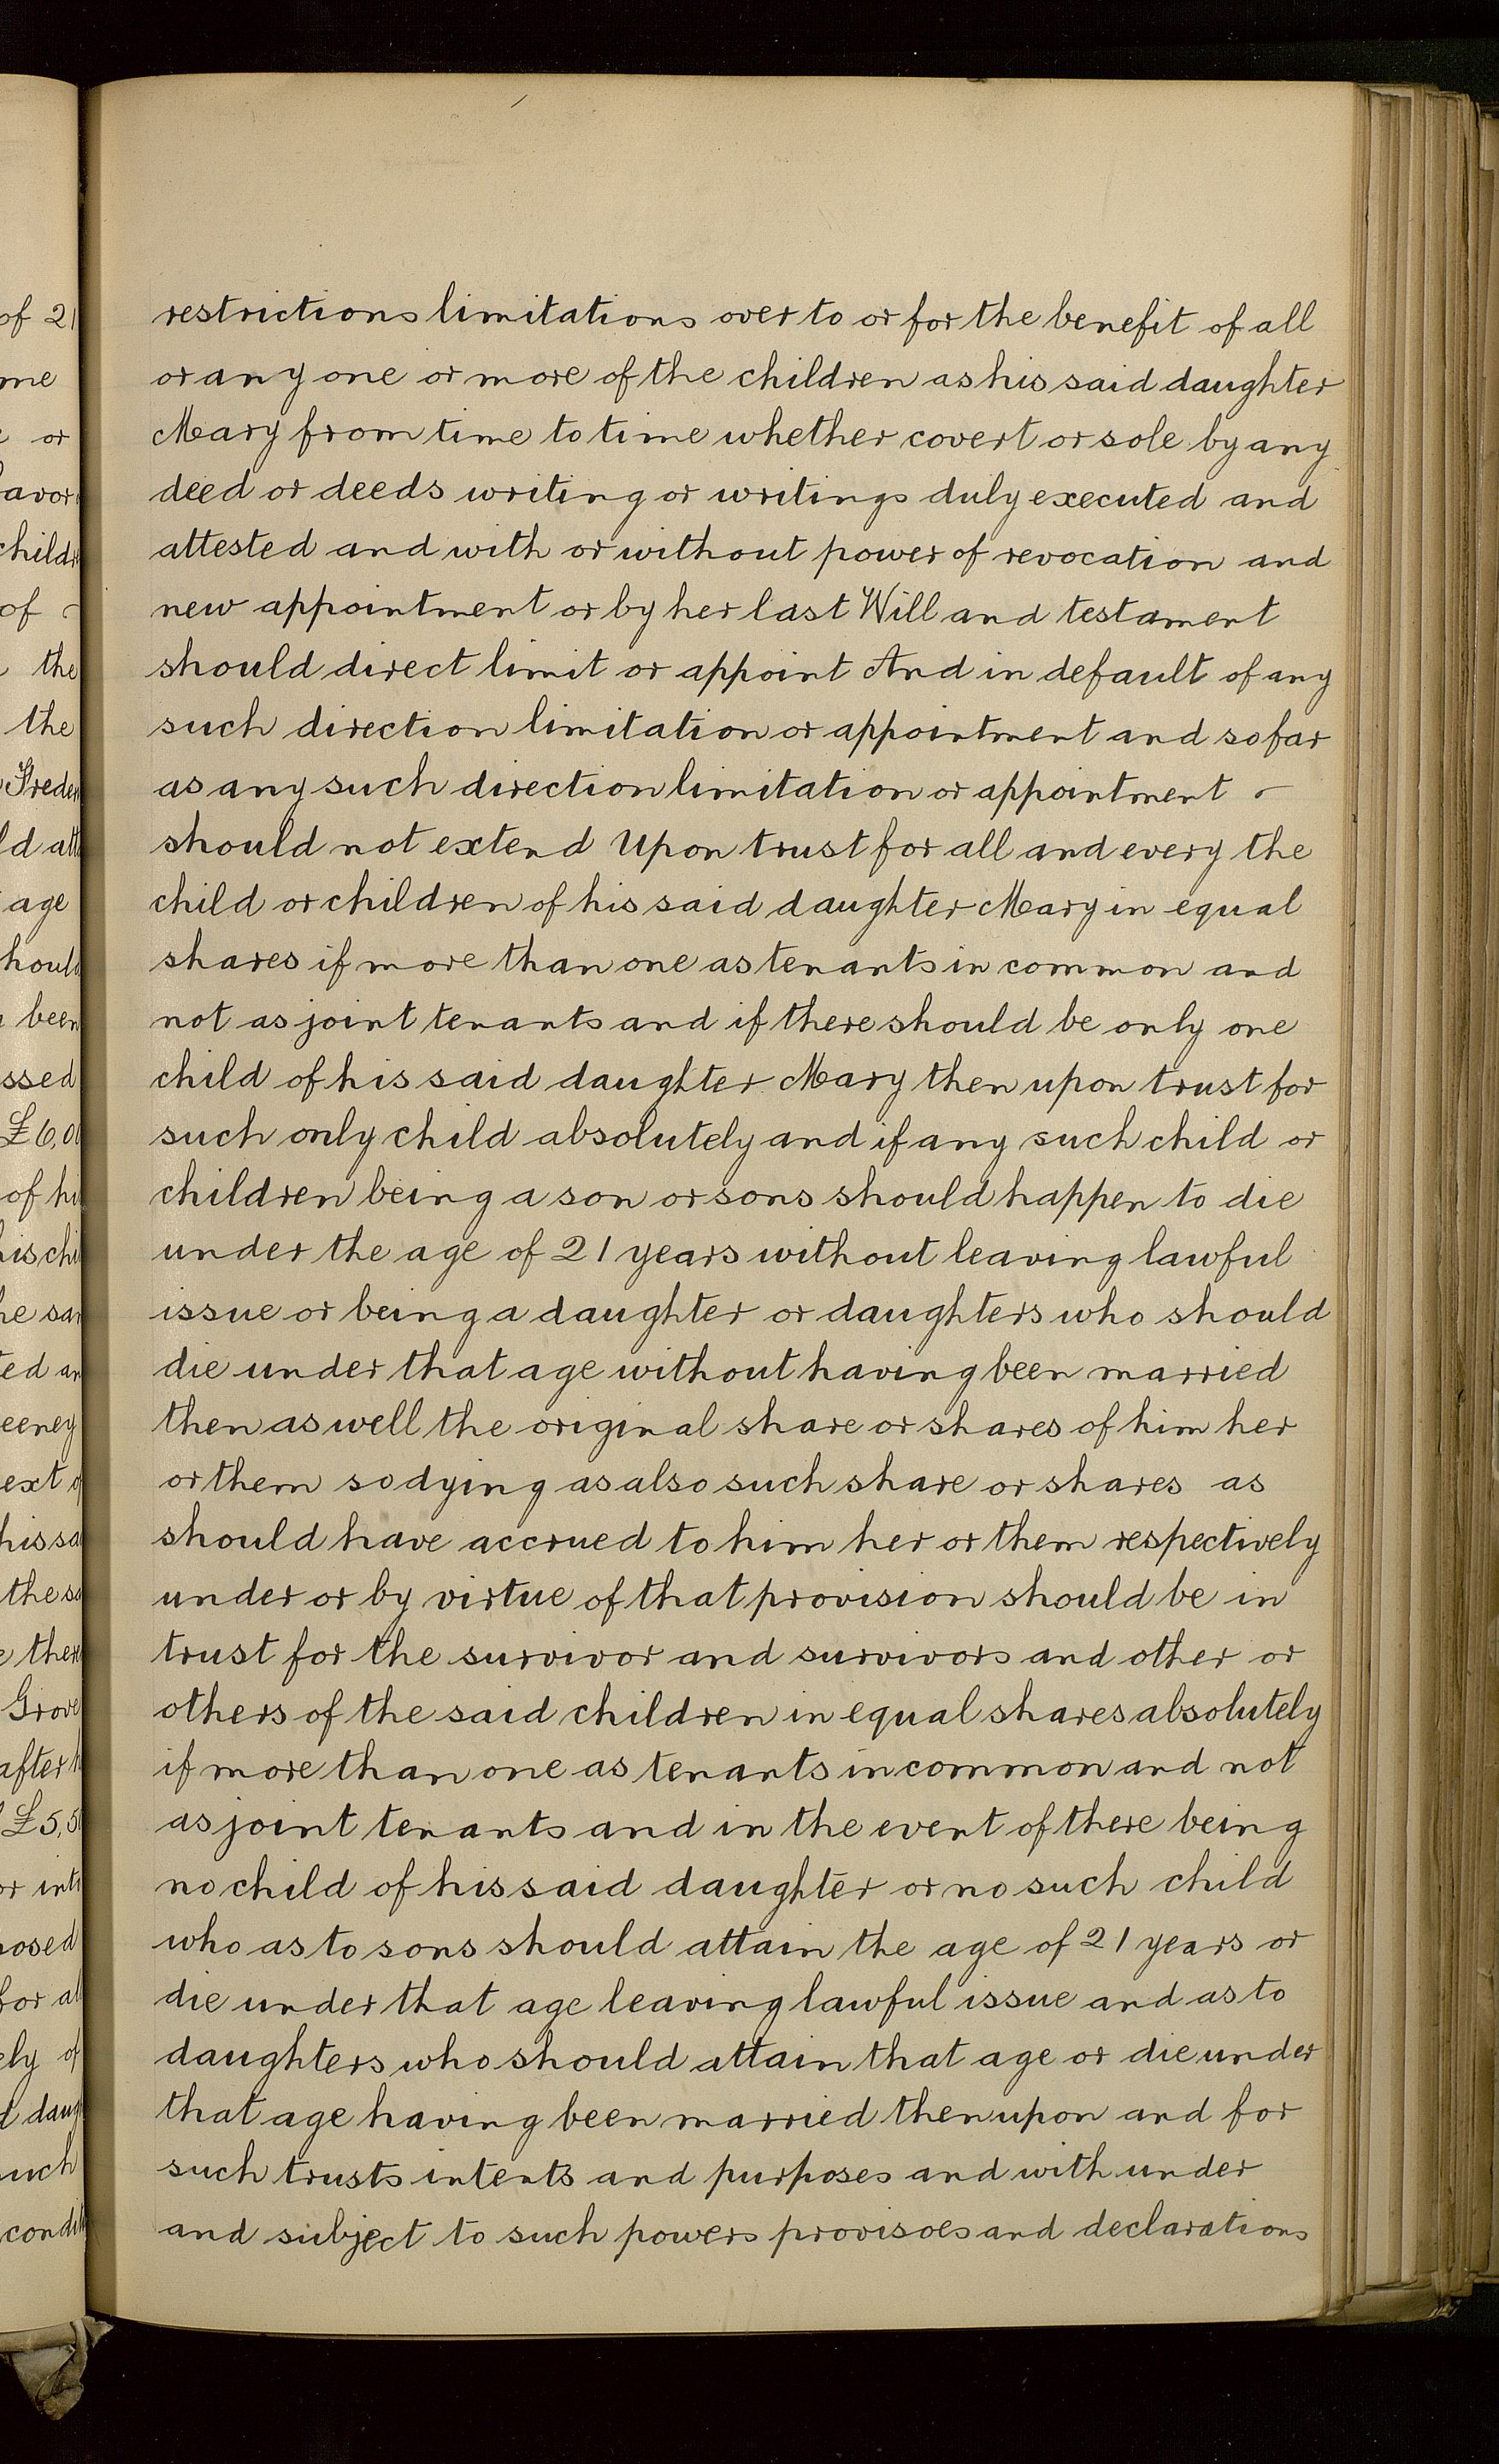 restrictions limitations over to or for the benefit of all
or any one or more of the children as his said daughter
Mary from time to time whether covert or sole by any
deed or deeds writing or writings duly executed and
attested and with or without power of revocation and
new appointment or by her last Will and testament
should direct limit or appoint And in default of any
such direction limitation or appointment and so far
as any such direction limitation or appointment
should not extend Upon trust for all and every the
child or children of his said daughter Mary in equal
shares if more than one as tenants in common and
not as joint tenants and if there should be only one
child of his said daughter Mary then upon trust for
such only child absolutely and if any such child or
children being a son or sons should happen to die
under the age of 21 years without leaving lawful
issue or being a daughter or daughters who should
die under that age without having been married
then as well the original share or shares of him her
or them so dying as also such share or shares as
should have accrued to him her or them respectively
under or by virtue of that provision should be in
trust for the survivor and survivors and other or
others of the said children in equal shares absolutely
if more than one as tenants in common and not
as joint tenants and in the event of there being
no child of his said daughter or no such child
who as to sons should attain the age of 21 years or
die under that age leaving lawful issue and as to
daughters who should attain that age or die under
that age having been married then upon and for
such trusts intents and purposes and with under
and subject to such powers provisoes and declarations